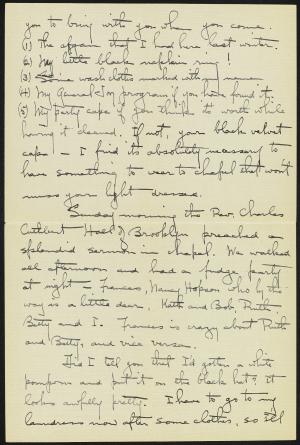 you to bring with you when you come.
(1) The apparn that I had here last winter.
(2) My little black napkin ring!
(3) Some wash cloths marked with my name
(4) My General Im program if you have found it.
(5) My party cape if you think its worth while
having it cleaned. If not, your black velvet
cape — I find its absolutely necessary to
have something to wear to chapel that won't
muss your light dresses.
Sunday morning the Rev. Charles
Cutbert Hall of Brooklyn preached a
splendid sermon in chapel. We walked
all afternoon and had a fudge party
at night — Frances, Nancy Hopson who by the
way is a little dear, Kath and Bob, Ruth,
Betty and I. Frances is crazy about Ruth
and Betty, and vice versa.
Did I tell you that I'd gotten a white
pompom and put it on the black hat? It
looks awfully pretty. I have to go to my
laundress now after some clothes, so I'll